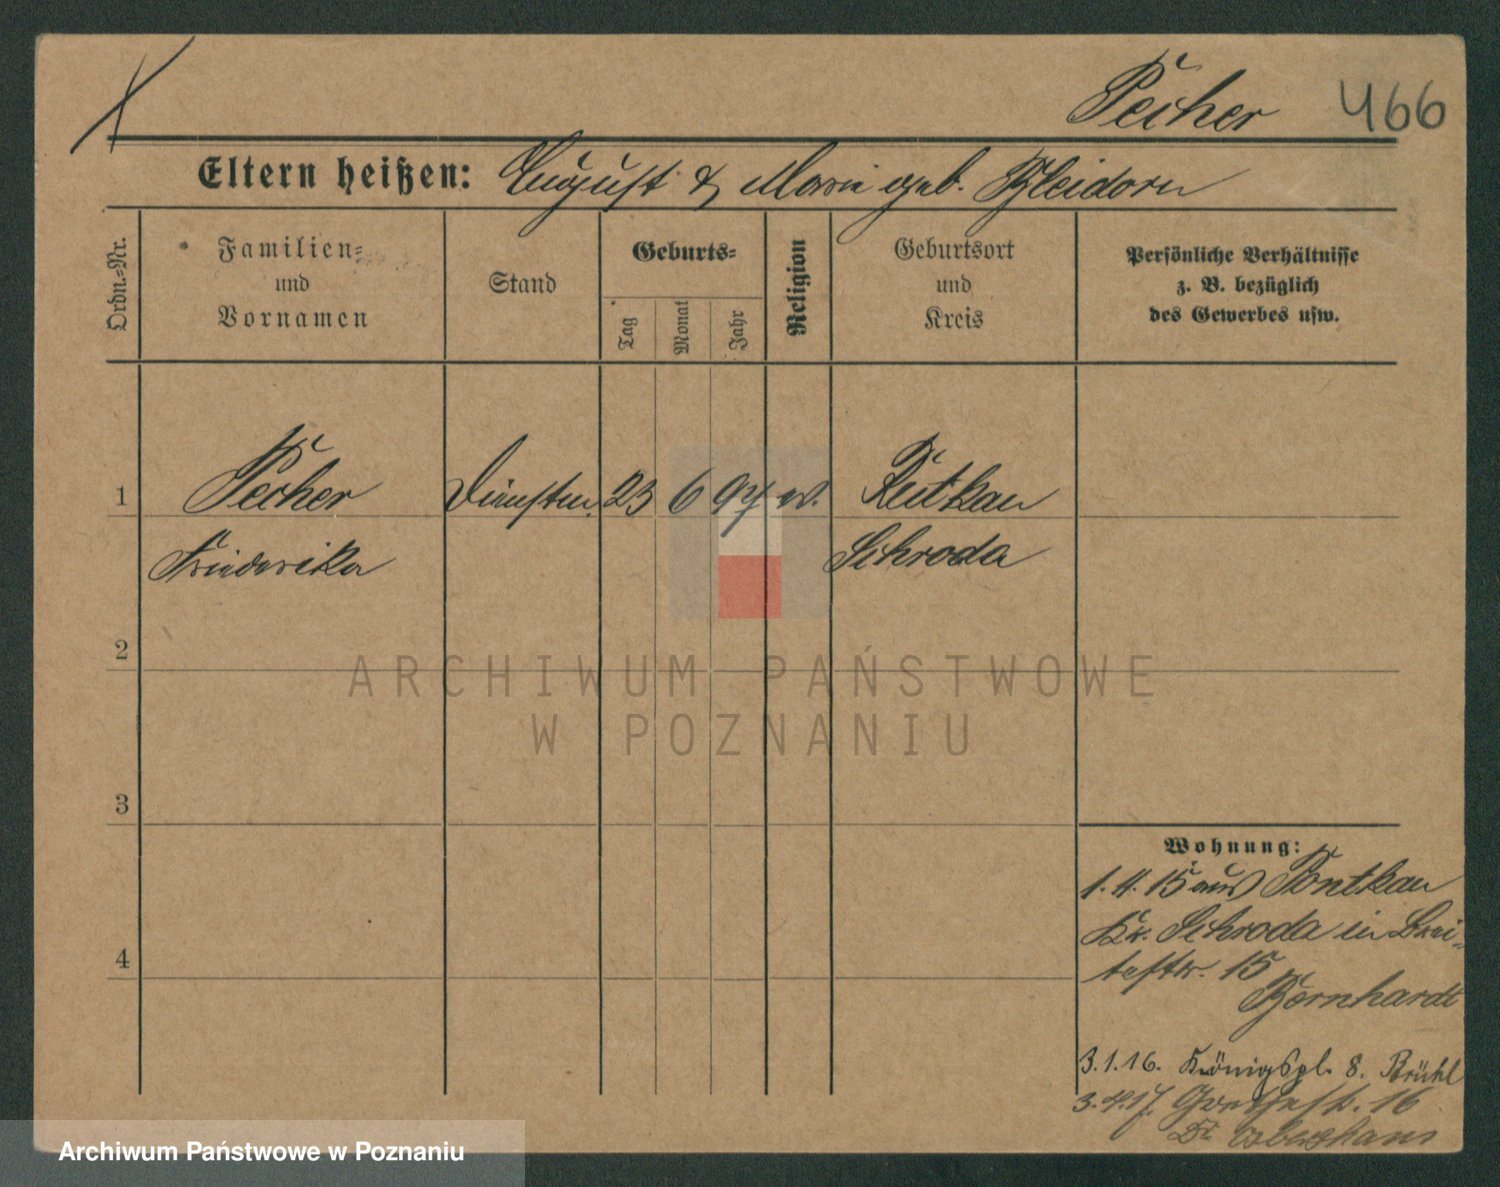 Pecher 466
Eltern heißen: August & Marie geb. Bleidorn
Ordn.-Nr.
Familien-
und
Vornamen
Stand
Geburts-
Tag
Monat
Jahr
Religion
Geburtsort
und
Kreis
Persönliche Verhältnisse
z. B. bezüglich
des Gewerbes usw.
1 Pecher Dienstm. 23 6 97 ev.
Friederika Schroda
2
ARCHIWUM PAŃSTWOWE
W POZNANIU
3
Wohnung:
1.4.15 aus
Kr. Schroda in Brei-
testr. 15
Bernhardt
4
3.1.16. Königspl. 8. Brühl
3.4.17. Goethestr. 16
Dr.
Archiwum Państwowe w Poznaniu